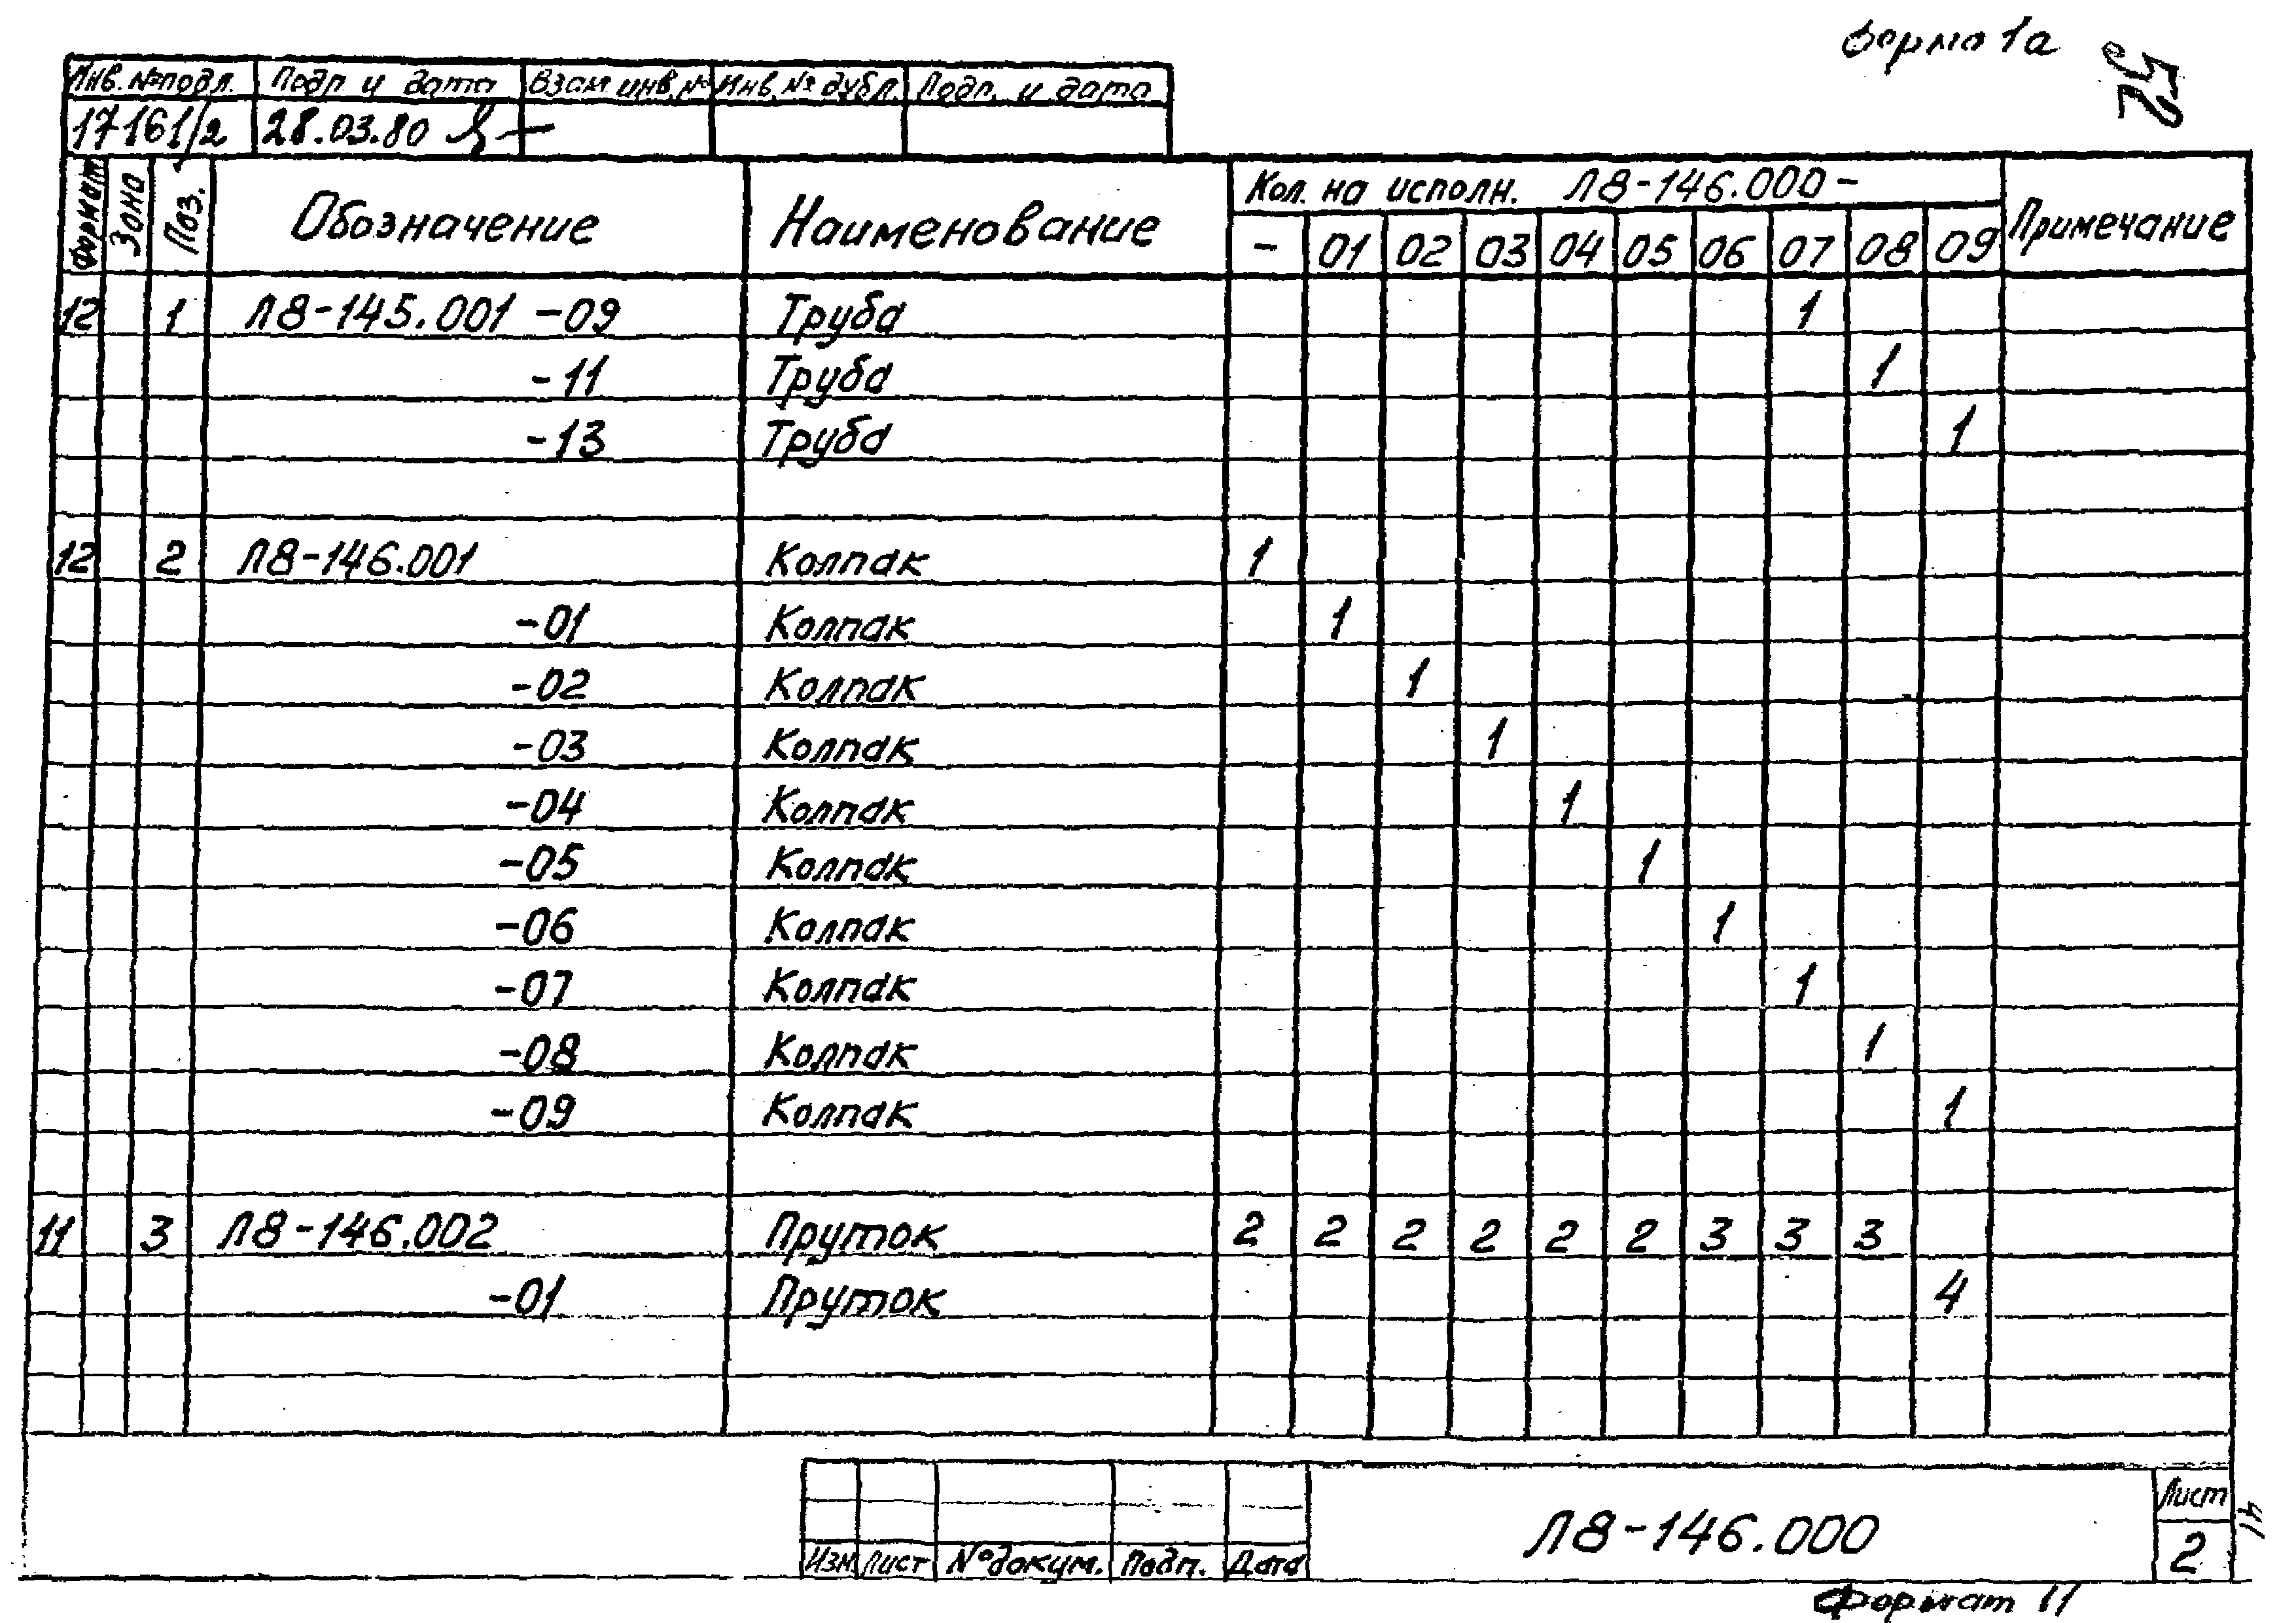 Форма 1а
52
Инв. № подл. Подп и дата Взам инв. № Инв. № дубл. Подп. и дата
17161/2 28.03.80
Формат Зона Поз. Обозначение Наименование Кол. на исполн. Л8-146.000- Примечание
- 01 02 03 04 05 06 07 08 09
12 1 Л8-145.001 -09 Труба 1
-11 Труба 1
-13 Труба 1
12 2 Л8-146.001 Колпак 1
-01 Колпак 1
-02 Колпак 1
-03 Колпак 1
-04 Колпак 1
-05 Колпак 1
-06 Колпак 1
-07 Колпак 1
-08 Колпак 1
-09 Колпак 1
11 3 Л8-146.002 Пруток 2 2 2 2 2 2 3 3 3
-01 Пруток 4
Изм Лист № докум. Подп. Дата
Л8-146.000
Лист
2
41
Формат 11